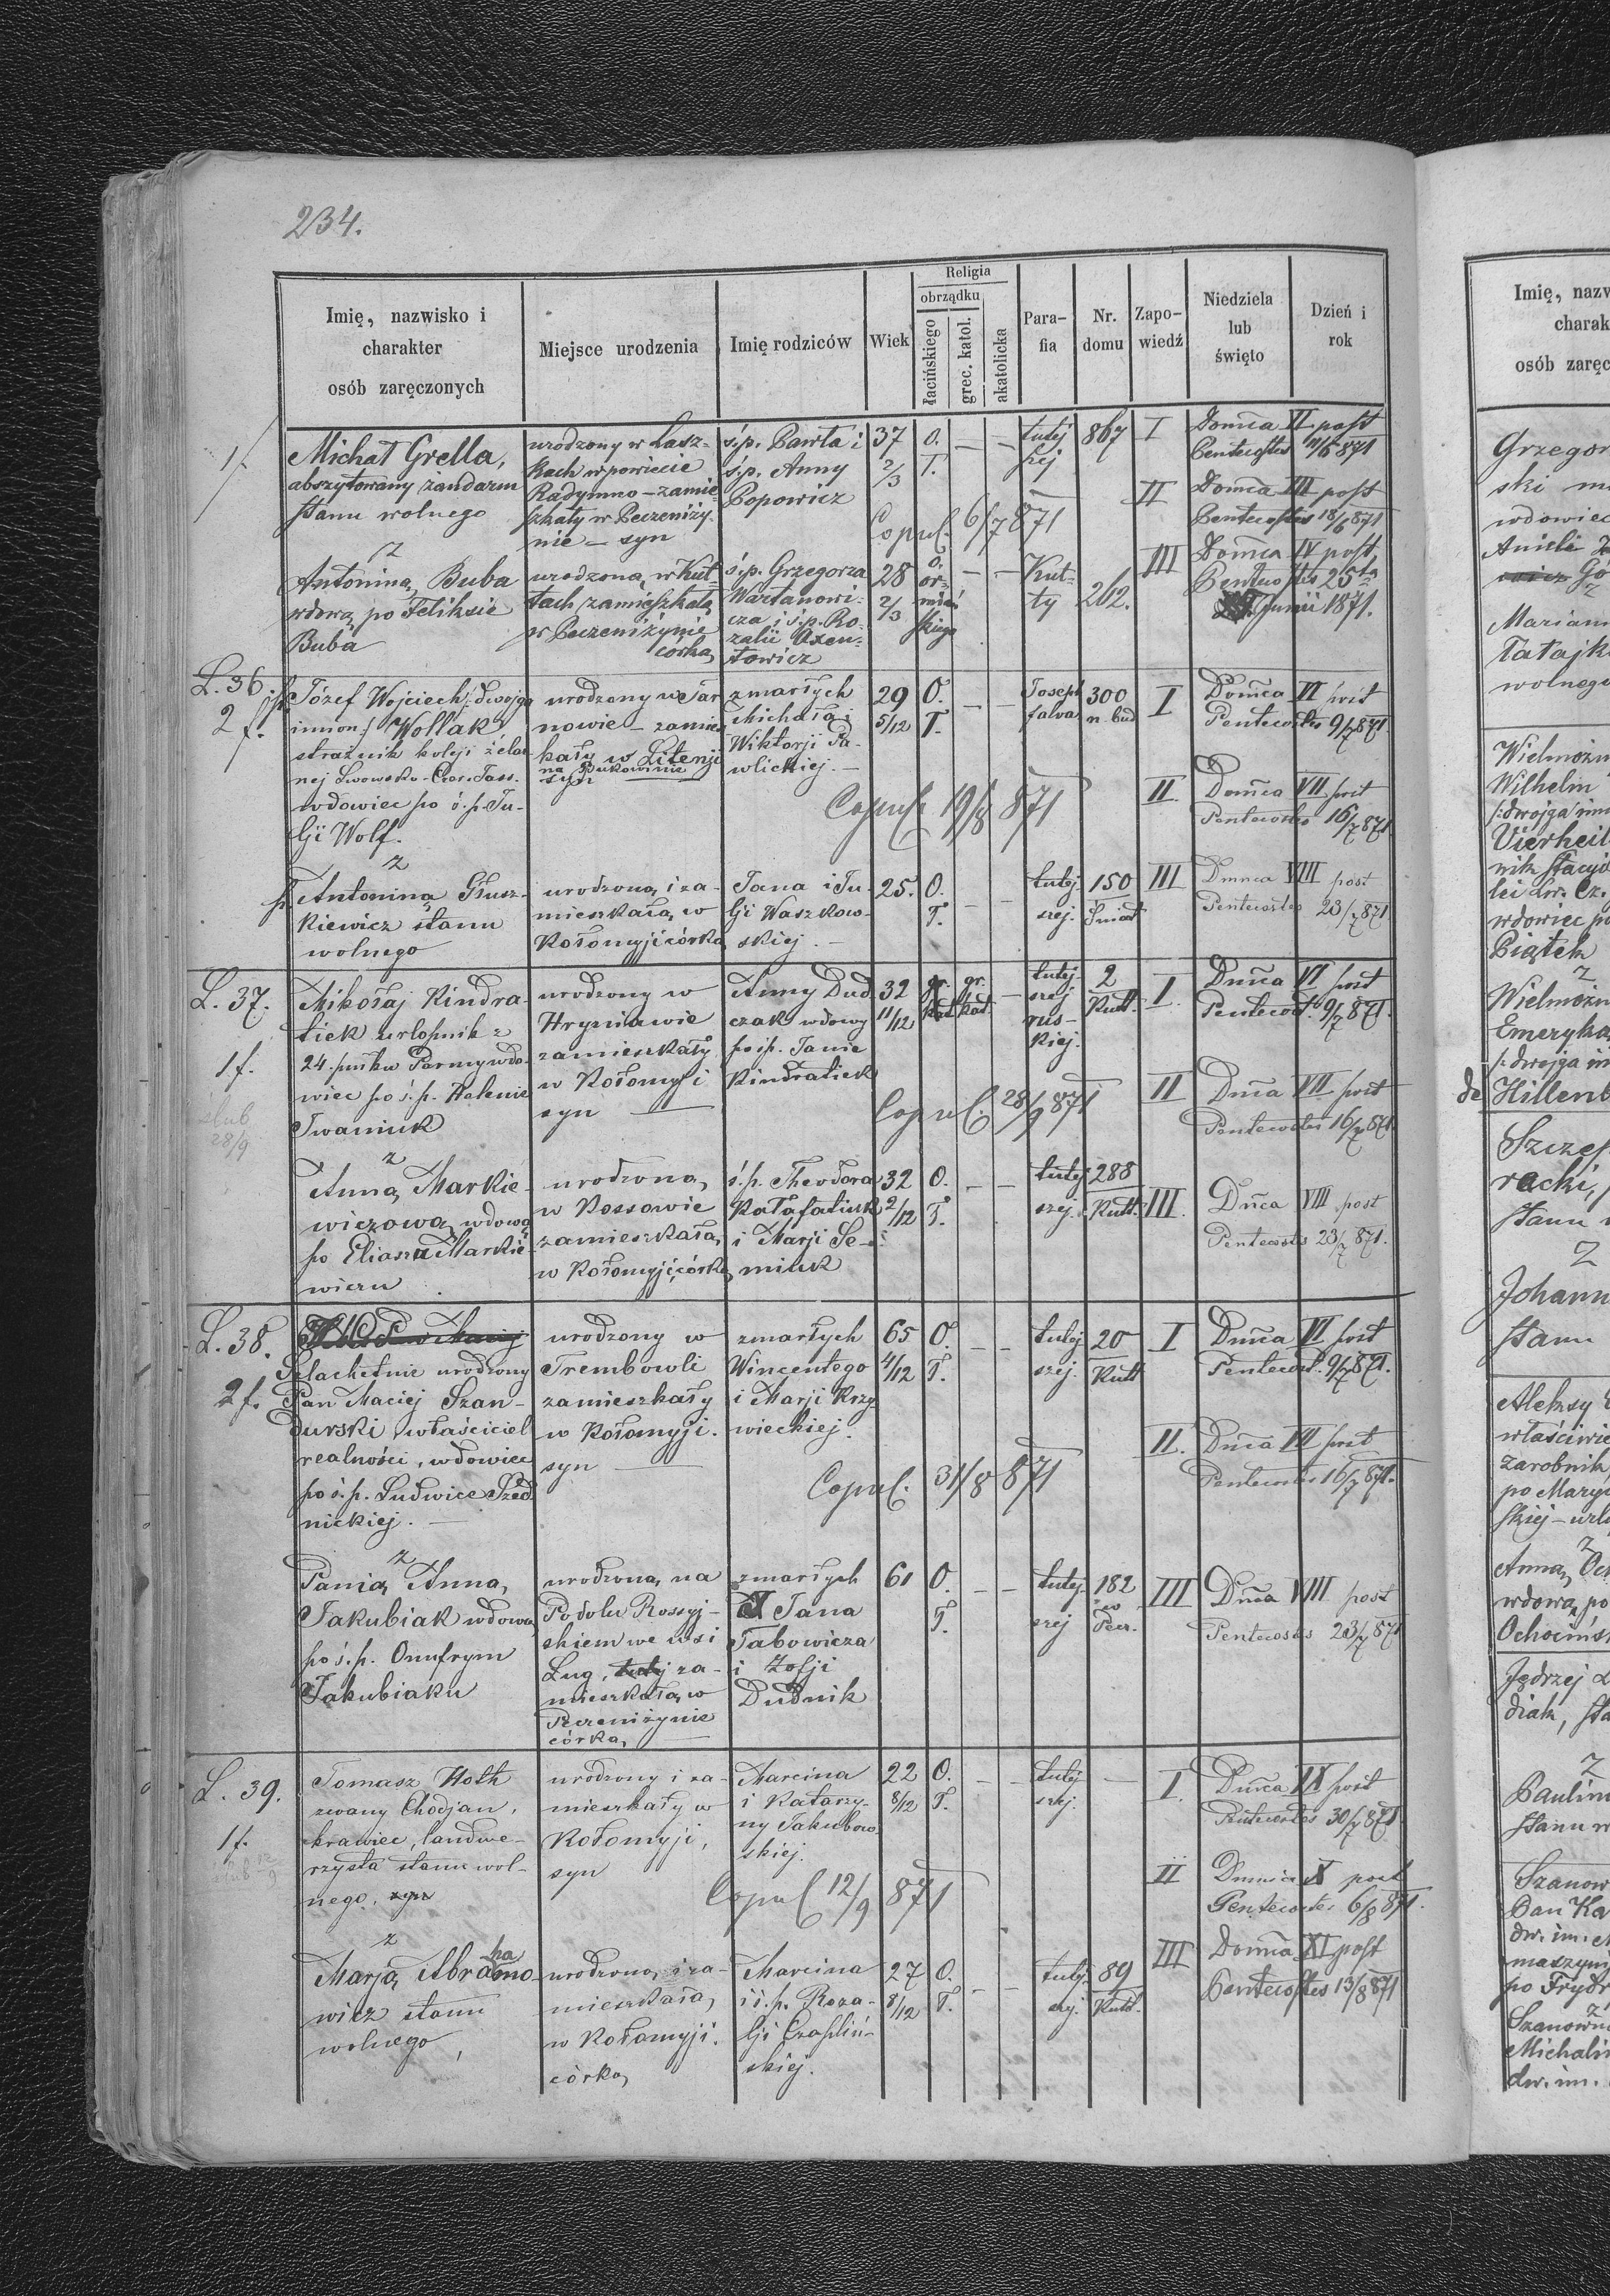 234.
Imię, nazwisko i charakter osób zaręczonych
Miejsce urodzenia
Imię rodziców
Wiek
Religia
obrządku
łacińskiego
grec. katol.
akatolicka
Para-fia
Nr. domu
Zapo-wiedź
Niedziela lub święto
Dzień i rok
1/.
Michał Grella,
abszytowany żandarm
stanu wolnego
urodzony w Łasz-
kach w powiecie
Radymno – zamie
szkały w Peczeniży-
nie – syn
ś.p. Pawła i
ś.p. Anny
Popowicz
37
2/3
O.
T.
— —
tutej
szej
867
I
Domca VI post
Pentecostes 11/6 871
II
Domca III post
Pentecostes 18/6 871
Copul. 6/7 871
z
Antoniną Buba
wdową po Feliksie
Buba
urodzoną w Kut-
tach zamieszkałą
w Peczeniżynie
córką
ś.p. Grzegorza
Wartanowi-
cza i ś.p. Ro-
zalii Axen-
towicz
28
2/3
o.
or-
miań
skiego
— —
Kut-
ty
262.
III
Domca IV post
Pentecostes 25ta
Junii 1871.
L. 36.
2 f.
Józef Wojciech /:dwojga
imion:/ Wollak
strażnik koleji żelaz
nej Lwowsko-Czer. Jass.
wdowiec po ś.p. Ju-
lji Wolf.
urodzony w Tar
nowie – zamiesz
kały w Litenji
na Bukowinie
syn
zmarłych
Michała i
Wiktorji Pa-
wlickiej. —
29
5/12
O.
T.
— —
Joseph
falva
300
n. bud
I
Domca VI post
Pentecostes 9/7 871.
II.
Domca VII post
Pentecostes 16/7 871
Copul. 19/8 871
z
Antoniną Głusz-
kiewicz stanu
wolnego
urodzoną i za-
mieszkałą w
Kołomyji córką
Jana i Ju-
lji Waszkow-
skiej. —
25.
O.
T.
— —
tutej-
szej.
150
Śniat
III
Dmnca VIII post
Pentecostes 23/7 871
L. 37.
1 f.
ślub
28/9
Mikołaj Kindra-
tiek urlopnik z
24. pułku Parmy wdo-
wiec po ś.p. Helenie
Iwaniuk
urodzony w
Hryniawie
zamieszkały
w Kołomyji
syn —
Anny Dud
czak wdowy
po śp. Janie
Kindratiek
32
11/12
gr.
kat
gr.
kat.
—
tutej-
szej
rus-
kiej.
2
Kutt.
I.
Dnca VI post
Pentecost. 9/7 871.
II
Dnca VII post
Pentecostes 16/7 871.
Copul. 28/9 871
z
Anną Markie-
wiczową wdową
po Eliaszu Markie-
wiczu
urodzoną
w Kossowie
zamieszkałą
w Kołomyji, córką
ś.p. Theodora
Kałafatiuk
i Marji Se-
miuk
32
2/12
O.
T.
— —
tutej
szej.
288
Kutt.
III.
Dnca VIII post
Pentecostes 23/7 871.
L. 38.
2 f.
Szlachetnie urodzony
Pan Maciej Szan-
durski właściciel
realności, wdowiec
po ś.p. Ludwice Szed
nickiej. —
urodzony w
Trembowli
zamieszkały
w Kołomyji.
syn —
zmarłych
Wincentego
i Marji Krzy
wieckiej.
65
4/12
O.
T.
— —
tutej
szej.
20
Kutt
I
Dnca VI post
Pentecost. 9/7 871.
II.
Dnca VII post
Pentecostes 16/7 871.
Copul. 31/8 871
z
Panią Anną
Jakubiak wdową
po ś.p. Onufrym
Jakubiaku
urodzoną na
Podolu Rossyj-
skiem we wsi
Ług, tutej za-
mieszkałą w
Peczeniżynie
córką —
zmarłych
Jana
Jabowicza
i Zofji
Dudnik
61
O.
T.
— —
tutej
szej
182
w
Pecz.
III
Dnca VIII post
Pentecostes 23/7 871
L. 39.
1 f.
ślub 12/9
Tomasz Hoth
zwany Chodjan,
krawiec, landwe-
rzysta stanu wol-
nego, syn
urodzony i za-
mieszkały w
Kołomyji,
syn
Marcina
i Katarzy-
ny Jakubow
skiej.
22
8/12
O.
T.
— —
tutej
szej.
—
I.
Dnca IX post
Pentecostes 30/7 871.
II
Dmnca X post
Pentecostes 6/8 871.
Copul 12/9 871
z
Marją Abrahamo-
wicz stanu
wolnego,
urodzoną i za-
mieszkałą
w Kołomyji.
córką
Marcina
i ś.p. Roza-
lji Czapliń-
skiej.
27
8/12
O.
T.
— —
tutej
szej.
89
Kutt.
III
Domca XI post
Pentecostes 13/8 871
Imię, nazw
charak
osób zaręc
Grzegor
ski
wdowiec
Anielą
Gó
z
Mariann
Tatajk
wolnego
Wielmożn
Wilhelm
/:dwojga im
Vierheil
nik stacyi
lei Lw. Cz.
wdowiec po
Piątek
z
Wielmożn
Emeryką
/:dwojga im
de Hillenb
Szczep
racki,
stanu w
z
Johann
stanu
Aleksy
właściwie
zarobnik
po Mary
skiej – url
z
Anną Och
wdową po
Ochocińs
Jędrzej
diak, sta
z
Paulin
stanu w
Szanow
Pan Ka
dw. im.
maszyni
po Frydr
z
Szanown
Michali
dw. im.